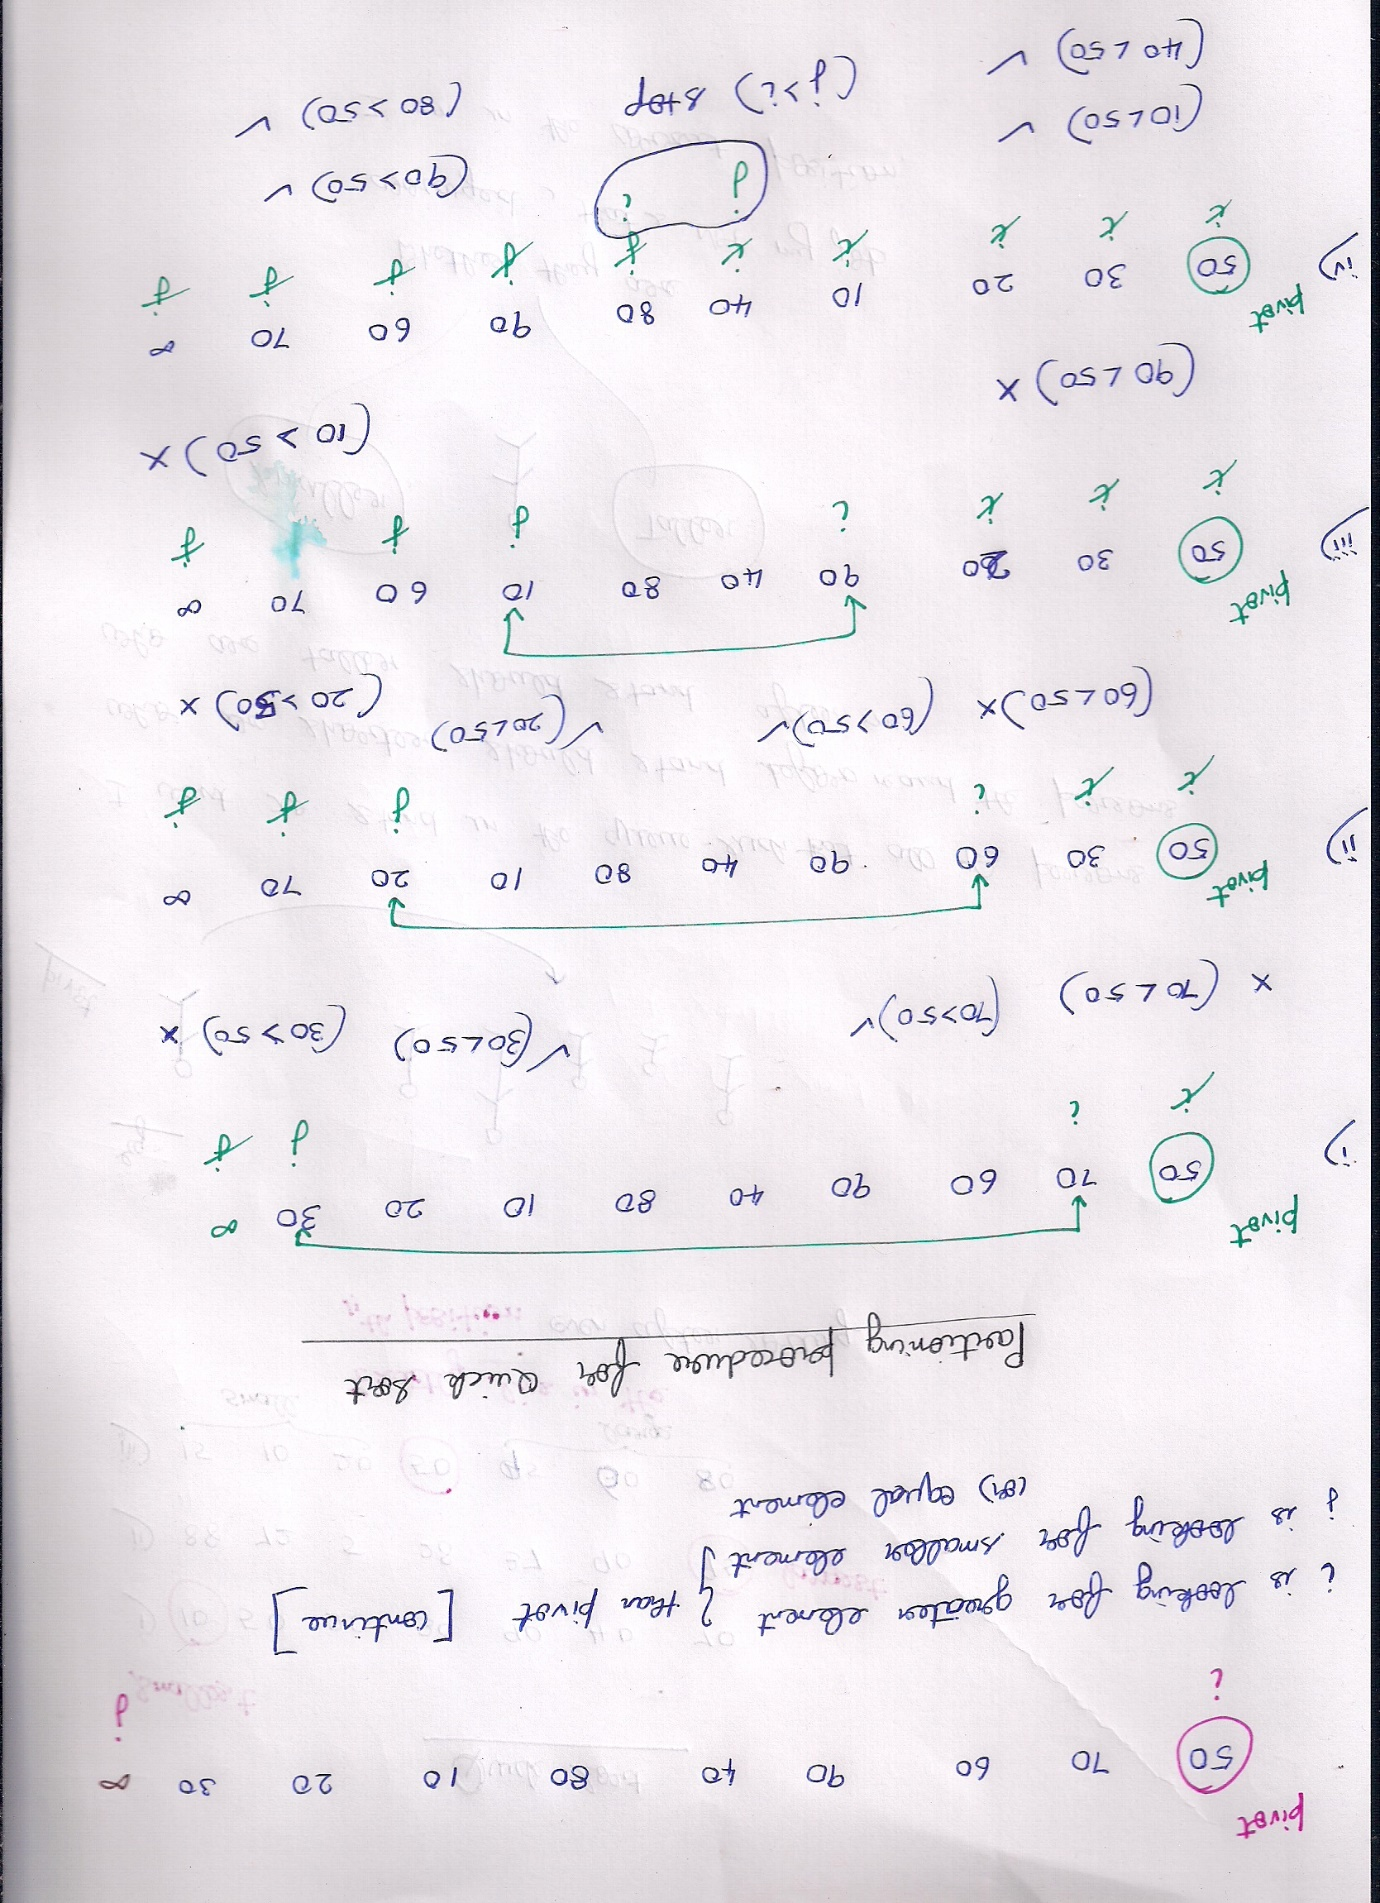 pivot
50 70 60 90 40 80 10 20 30 ∞
i j
i is looking for greater element } than pivot [continue]
j is looking for smaller element
(or) equal element
Partioning procedure for Quick sort
pivot
i) 50 70 60 90 40 80 10 20 30 ∞
i i j j
x (70<50) (70>50)✓ ✓(30<50) (30>50) x
pivot
ii) 50 30 60 90 40 80 10 20 70 ∞
i i i j j j
(60<50)x (60>50)✓ ✓(20<50) (20>50) x
pivot
iii) 50 30 20 90 40 80 10 60 70 ∞
i i i i j j j
(90<50) x (10>50) x
pivot
iv) 50 30 20 10 40 80 90 60 70 ∞
i i i i i j j j j j
j i
(10<50) ✓ (j>i) stop (90>50) ✓
(40<50) ✓ (80>50) ✓